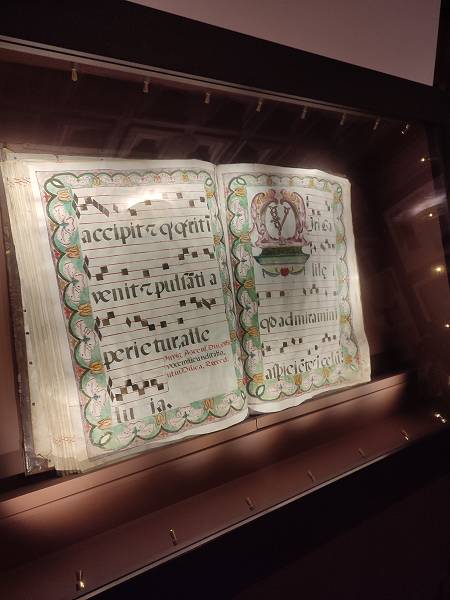 accipit ⁊ q̃ q̃rit i
venit ⁊ pulsãti a
perietur, alle
lu ia.
Viri Ga
lile i
qd admiramini
aspiciẽtes ĩ celũ